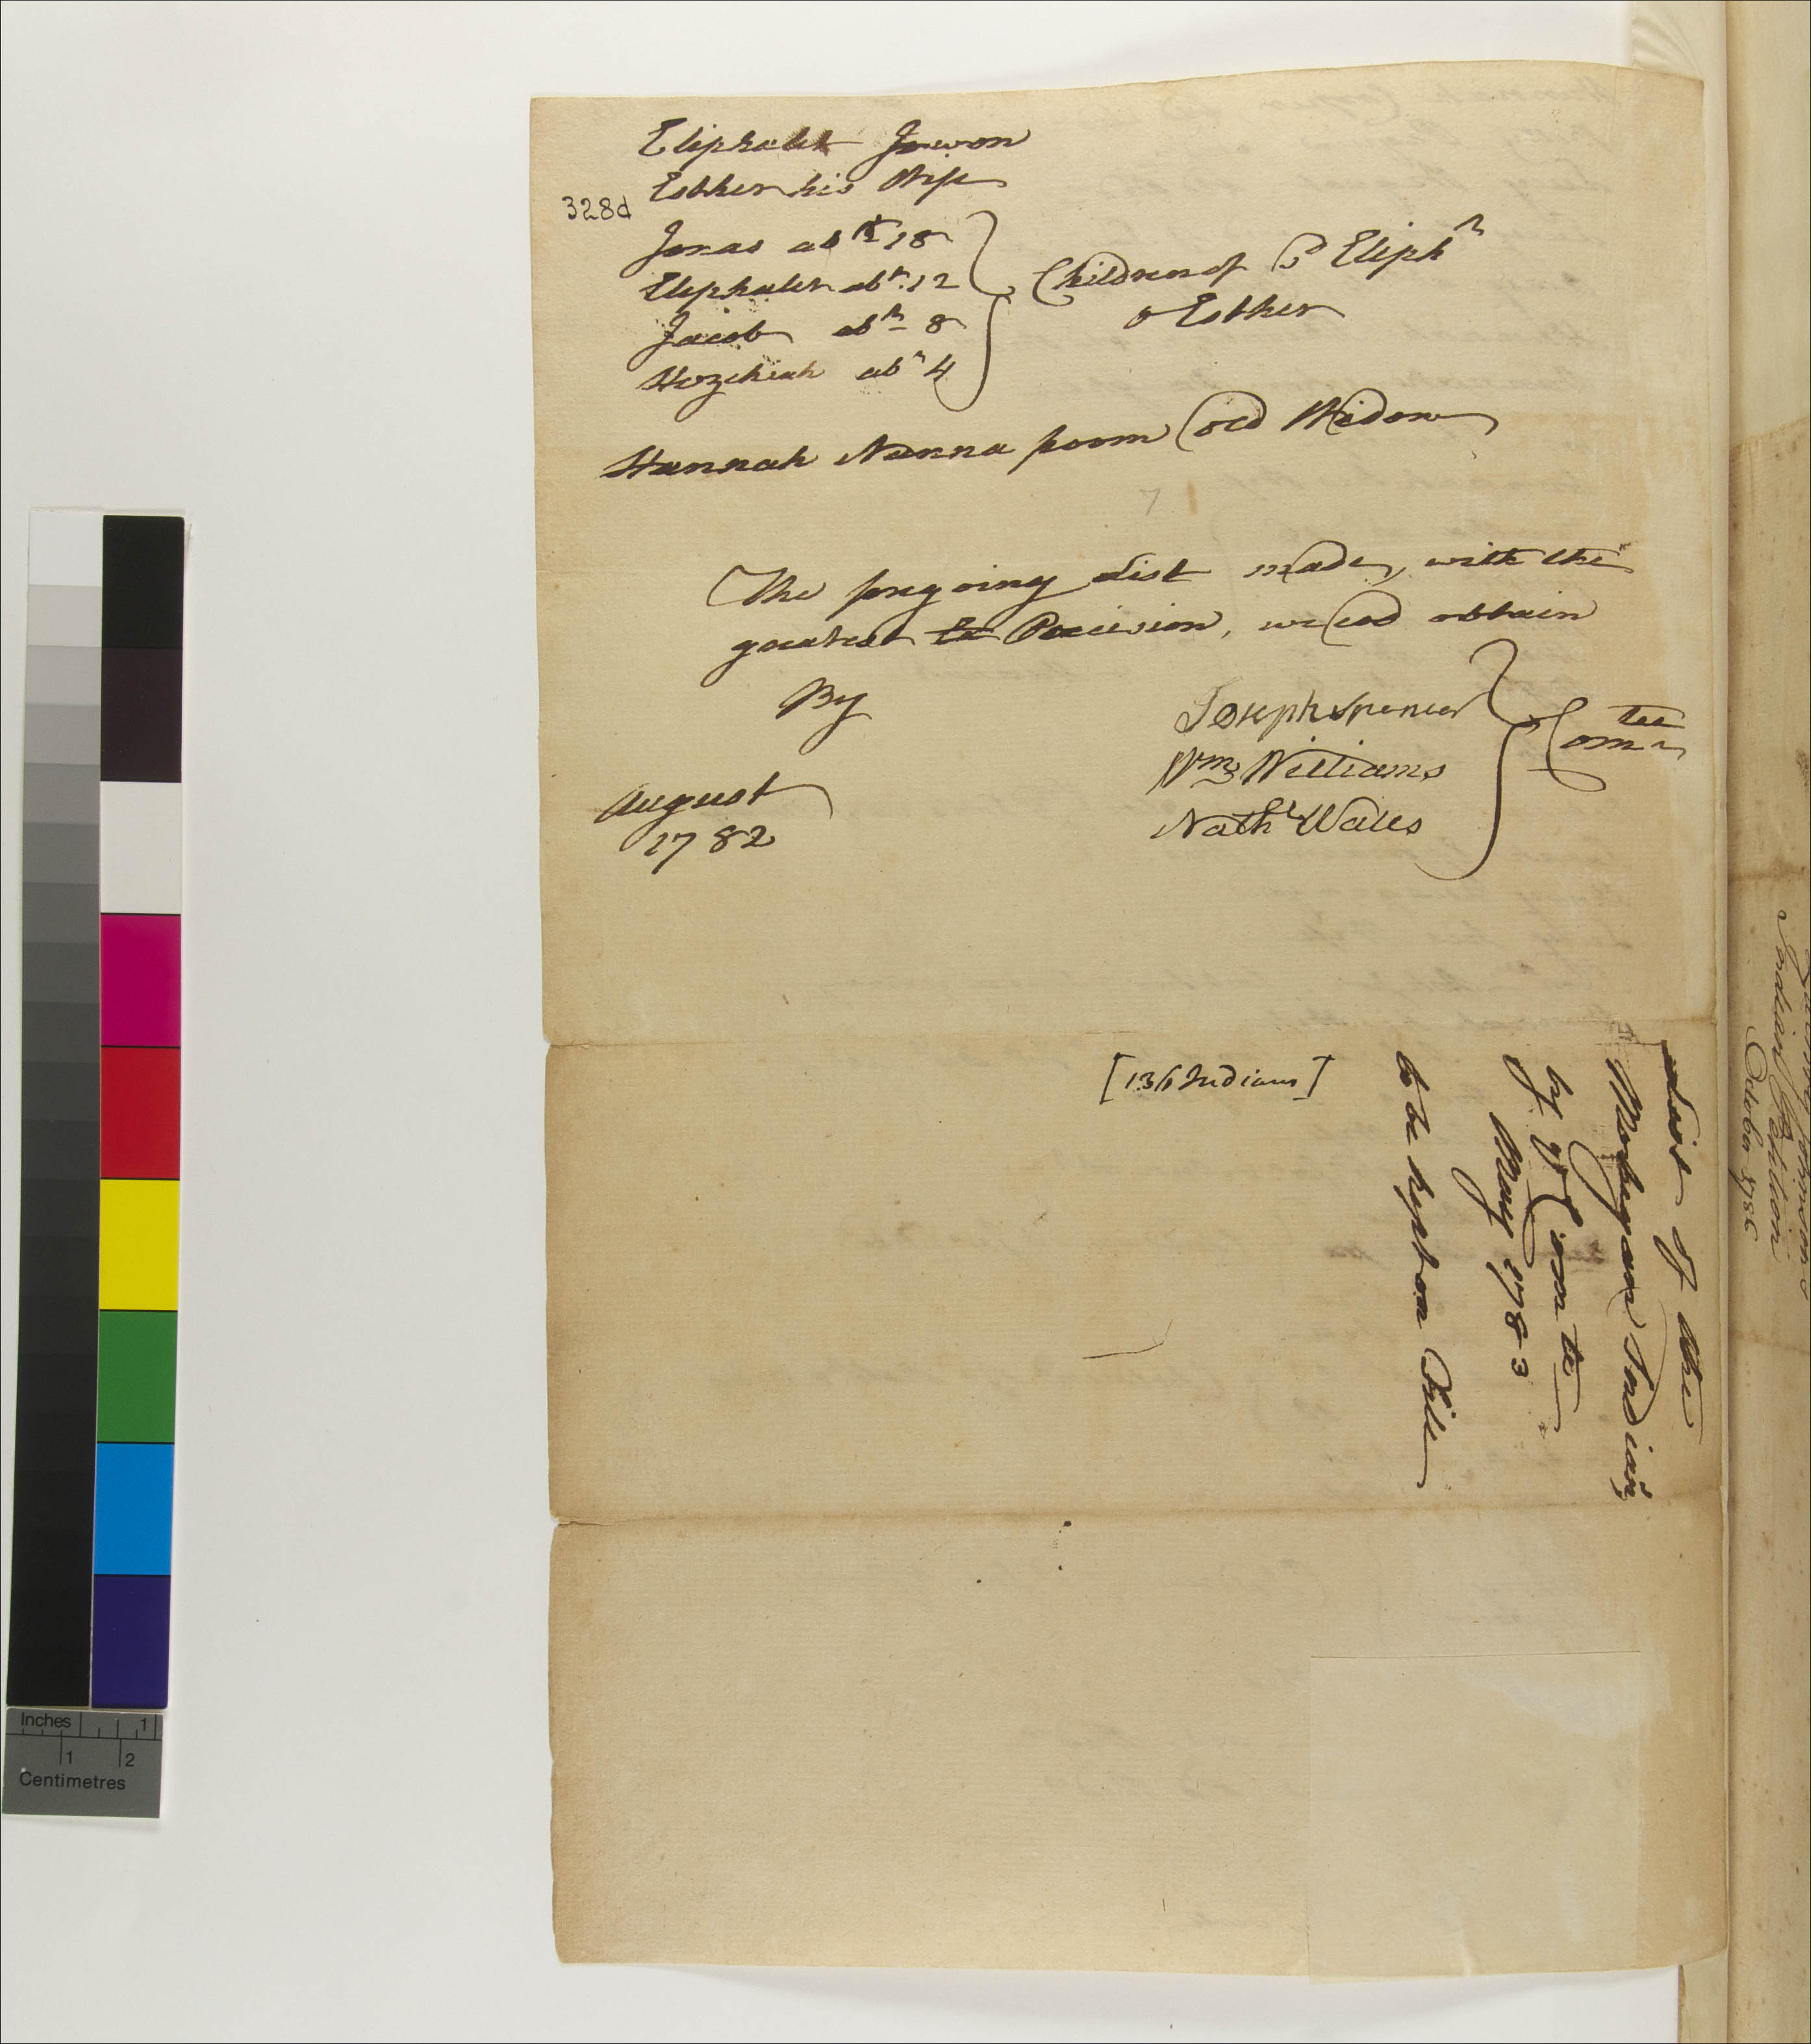 Eliphalet Jowon
Esther his Wife
328d
Jonas abt 18
Eliphalet abt. 12
Jacob abt 8
Hezekiah abt 4
Children of sd Elipht
& Esther
Hannah Nanna poom old Widow
The foregoing List made, with the
greatest Precision, we cod obtain
By
Joseph Spencer
Wm Williams
Nathl Wales
Comtee
August
1782
[136 Indians]
List of the
Mohegan Indians
by ye Comtee
May 1783
to be kept on File
Indian Petition
October 1786
Inches 1
1 2
Centimetres